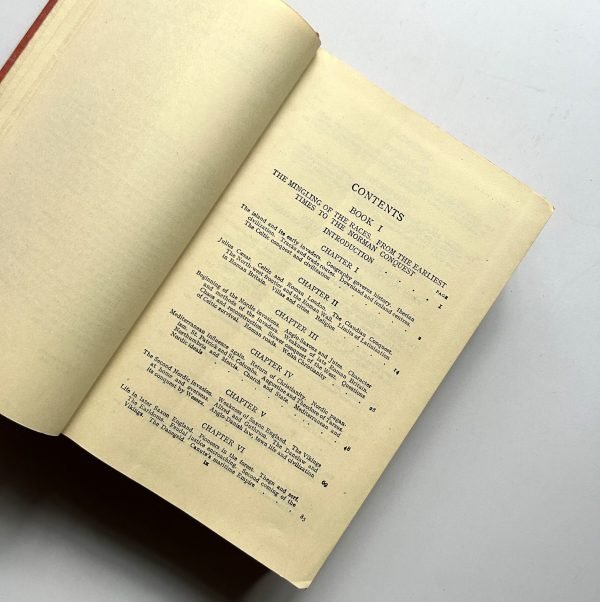 CONTENTS
BOOK I
THE MINGLING OF THE RACES, FROM THE EARLIEST
TIMES TO THE NORMAN CONQUEST
PAGE
INTRODUCTION . . . . . . 1
CHAPTER I
The island and its early invaders. Geography governs history. Iberian
civilization. Trade and trade-routes. Downland and fenland centres.
The Celtic conquest and civilization . . . . 2
CHAPTER II
Julius Cæsar. Celtic and Roman London. The Claudian Conquest.
The North-west frontier and the Roman Wall. Limits of Latinisation
in Roman Britain. Villas and cities. Religion . . . 14
CHAPTER III
Beginning of the Nordic invasions. Anglo-Saxons and Jutes. Character
and methods of the invaders. Weakness of late Roman Britain.
Chaos and reconstruction. Slower conquest of the West. Questions
of Celtic survival. Roman roads. Welsh Christianity . . 28
CHAPTER IV
Mediterranean influence again. Return of Christianity. Nordic pagan-
ism. St. Patrick and St. Columba. Augustine and Theodore of Tarsus.
Northumbria and Mercia. Church and State. Mediterranean and
Nordic ideals . . . . . . 48
CHAPTER V
The Second Nordic Invasion. Weakness of Saxon England. The Vikings
at home and oversea. Alfred and Guthrum. The Danelaw and
its conquest by Wessex. Anglo-Danish law, town life and civilization 69
CHAPTER VI
Life in later Saxon England. Pioneers in the forest. Thegn and serf.
The Earldoms. Feudal Justice approaching. Second coming of the
Vikings. The Danegeld. Canute's maritime Empire . . 85
ix